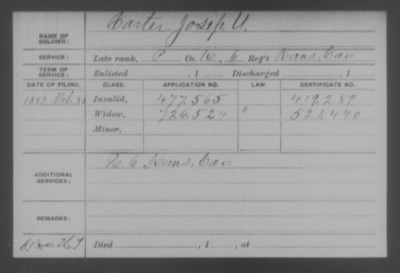 NAME OF SOLDIER: Carter Joseph U.
SERVICE: Late rank, P Co. K, 6 Reg't Kans. Cav
TERM OF SERVICE: Enlisted , 1 Discharged , 1
DATE OF FILING. CLASS. APPLICATION NO. LAW. CERTIFICATE NO.
1883 Invalid, 477.565 419.280
Widow, 726.524 521.490
Minor,
ADDITIONAL SERVICES: K 6 Kans. Cav
REMARKS:
Died , 1 , at